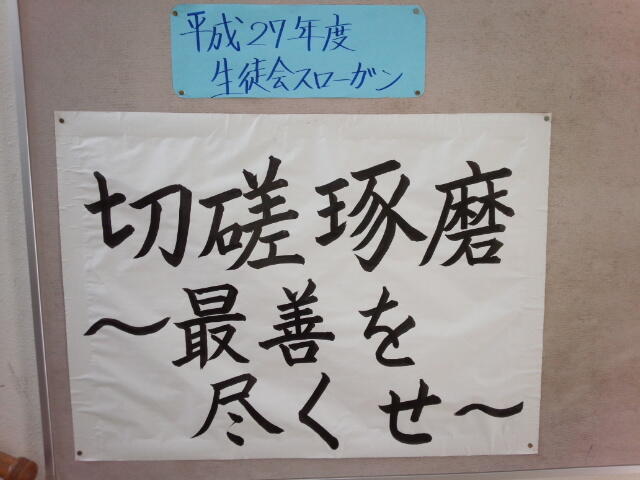 平成27年度
生徒会スローガン
切磋琢磨
〜最善を
尽くせ〜